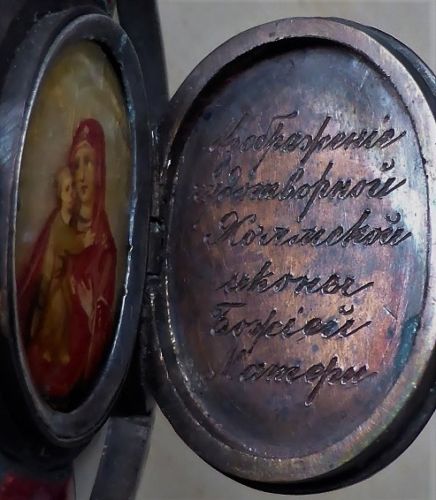 Изображеніе
чудотворной
Холмской
иконы
Божіей
Матери